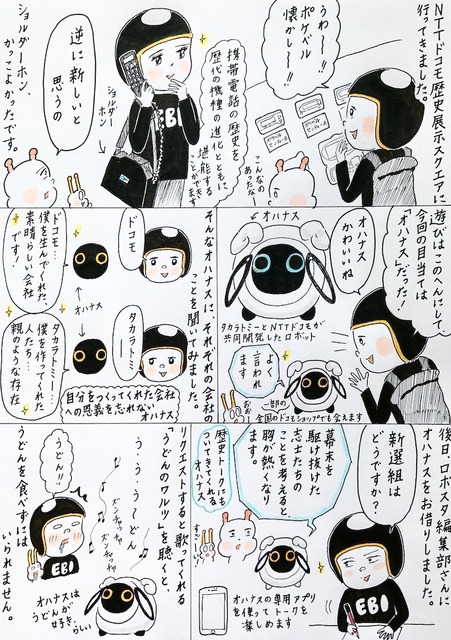 NTTドコモ歴史展示スクエアに
行ってきました。
うわ〜!!
ポケベル
懐かし〜!!
こんなの
あったなあ
携帯電話の歴史を
歴代の機種の進化とともに
堪能する
ことができます
逆に新しいと
思うの
EBI
ショルダー
ホン
ショルダーホン、
かっこよかったです。
遊びはこのへんにして、
今回の目当ては
「オハナス」だった!
オハナス
かわいいね
オハナス
タカラトミーとNTTドコモが
共同開発したロボット
よく
言われ
ます
一部の
全国のドコモショップでも会えます
そんなオハナスに、それぞれの会社の
ことを聞いてみました。
ドコモ
ドコモ…
僕を生んでくれた、
素晴らしい会社
です!
オハナス
タカラトミー
タカラトミー…
僕を作ってくれた
人たち…
親のような存在
自分をつくってくれた会社
への恩義を忘れない
オハナス
後日、ロボスタ編集部さんに
オハナスをお借りしました。
新選組は
どうですか?
EBI
幕末を
駆け抜けた
志士たちの
ことを考えると、
胸が熱くなり
ます。
歴史トークにも
ついてきてくれる
オハナス
すごーい
オハナスの専用アプリ
を使ってトークを
楽しめます
リクエストすると歌ってくれる
「うどんのワルツ」を聴くと、
う〜う〜う〜どん
ズンチャッチャ
ズンチャッチャ
うどん!!
EBI
オハナスは
うどんが
好き、らしい
うどんを食べずには
いられません。